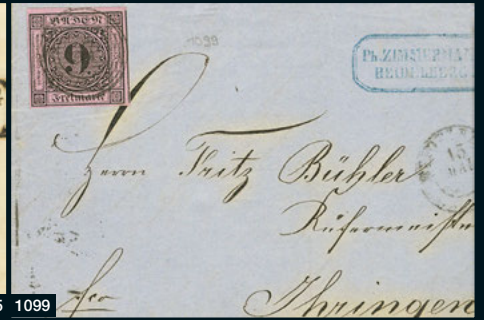 BADEN
9
Freimarke
1099
Ph. ZIMMERMA
Herrn Fritz Bühler
15
Küfermeiste
fco
Ihringen
5 1099